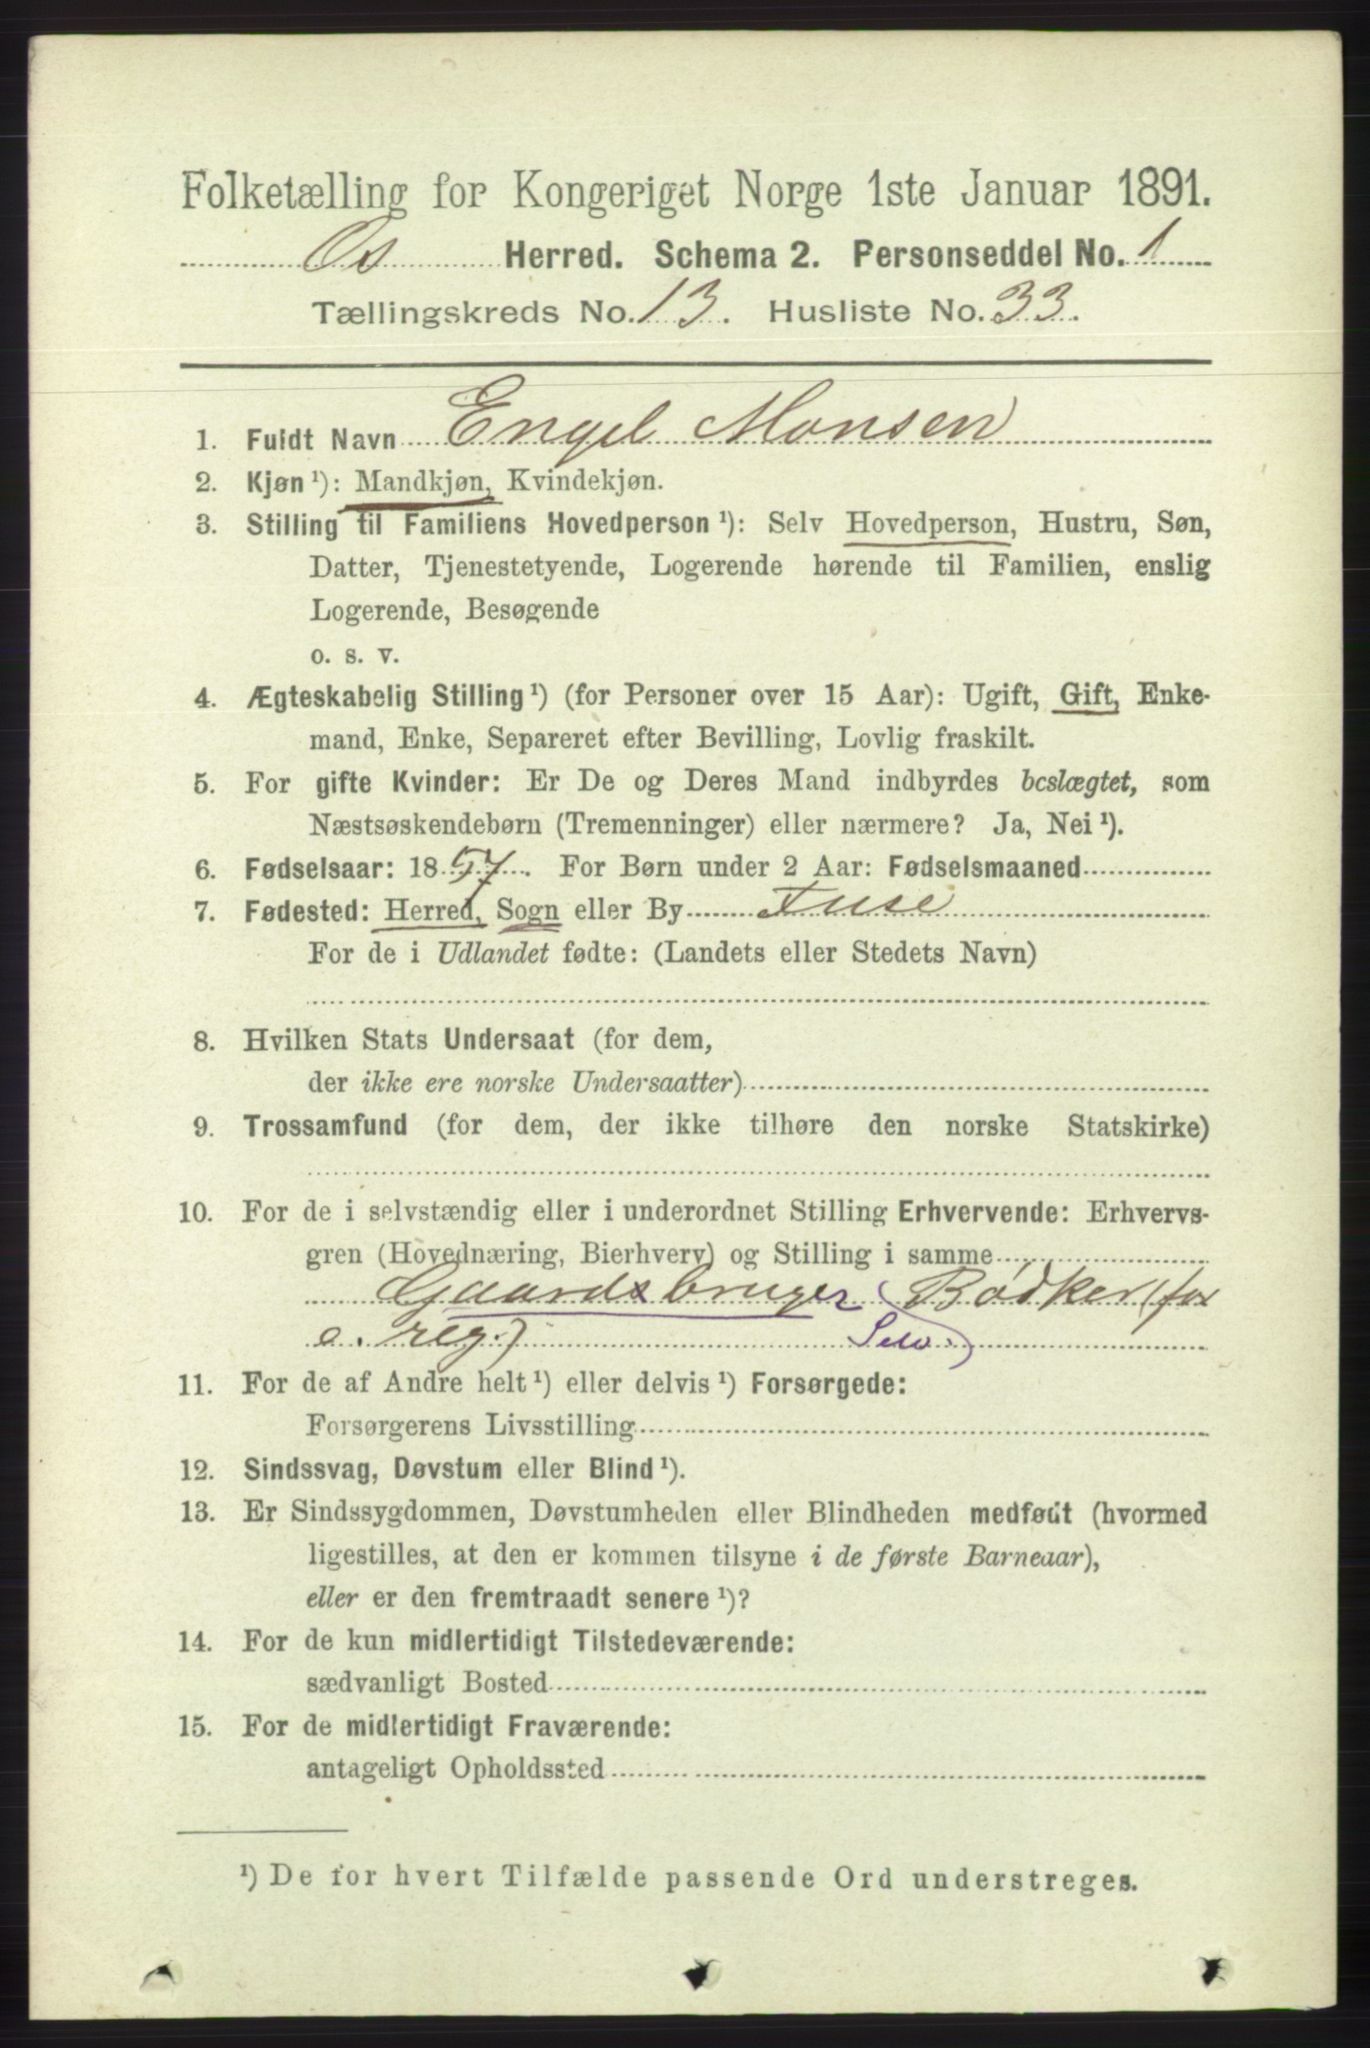 Folketælling for Kongeriget Norge 1ste Januar 1891.
Os Herred. Schema 2. Personseddel No. 1
Tællingskreds No. 13. Husliste No. 33.
1. Fuldt Navn Engel Monsen
2. Kjøn ¹): Mandkjøn, Kvindekjøn.
3. Stilling til Familiens Hovedperson ¹): Selv Hovedperson, Hustru, Søn,
Datter, Tjenestetyende, Logerende hørende til Familien, enslig
Logerende, Besøgende
o. s. v.
4. Ægteskabelig Stilling ¹) (for Personer over 15 Aar): Ugift, Gift, Enke-
mand, Enke, Separeret efter Bevilling, Lovlig fraskilt.
5. For gifte Kvinder: Er De og Deres Mand indbyrdes beslægtet, som
Næstsøskendebørn (Tremenninger) eller nærmere? Ja, Nei ¹).
6. Fødselsaar: 1857. For Børn under 2 Aar: Fødselsmaaned
7. Fødested: Herred, Sogn eller By Fuse
For de i Udlandet fødte: (Landets eller Stedets Navn)
8. Hvilken Stats Undersaat (for dem,
der ikke ere norske Undersaatter)
9. Trossamfund (for dem, der ikke tilhøre den norske Statskirke)
10. For de i selvstændig eller i underordnet Stilling Erhvervende: Erhvervs-
gren (Hovednæring, Bierhverv) og Stilling i samme
Gaardsbruger (Bødker (for
e. reg.) Selv.)
11. For de af Andre helt ¹) eller delvis ¹) Forsørgede:
Forsørgerens Livsstilling
12. Sindssvag, Døvstum eller Blind ¹).
13. Er Sindssygdommen, Døvstumheden eller Blindheden medfødt (hvormed
ligestilles, at den er kommen tilsyne i de første Barneaar),
eller er den fremtraadt senere ¹)?
14. For de kun midlertidigt Tilstedeværende:
sædvanligt Bosted
15. For de midlertidigt Fraværende:
antageligt Opholdssted
¹) De for hvert Tilfælde passende Ord understreges.